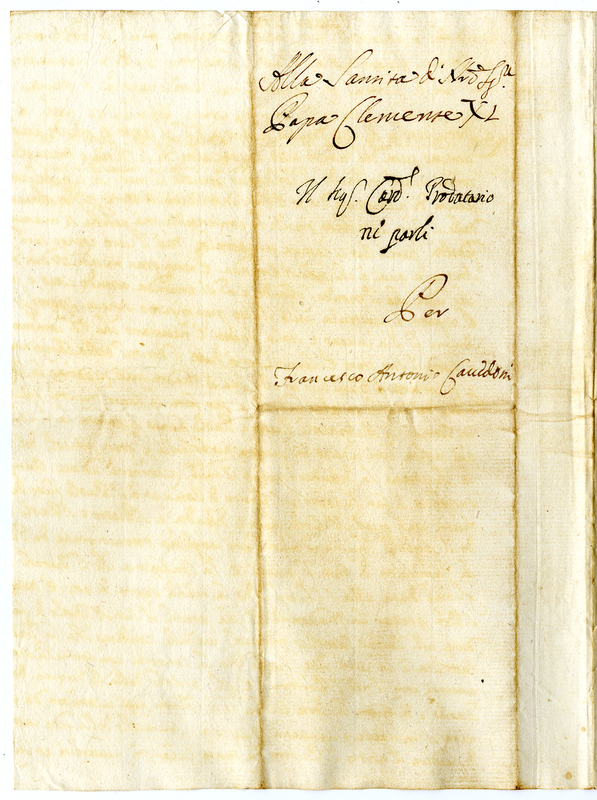 Alla Santità di Nrõ Sigre
Papa Clemente XI
Il Sigr. Card.l Prodatario
ni parli
Per
Francesco Antonio Cavidoni